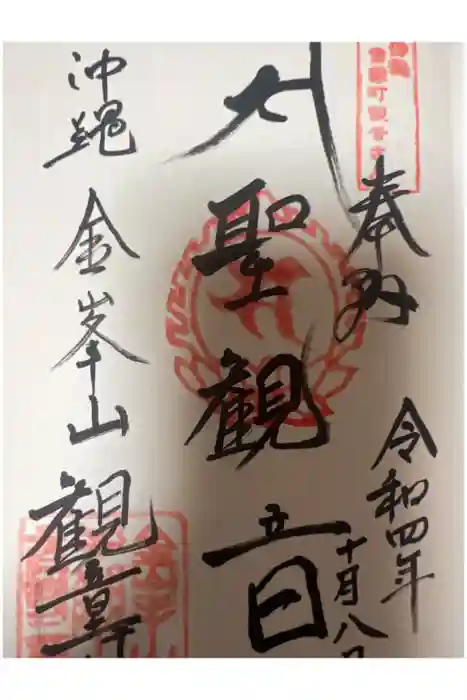 奉拝
令和四年
十月八日
聖観音
沖縄
金峯山
観音寺